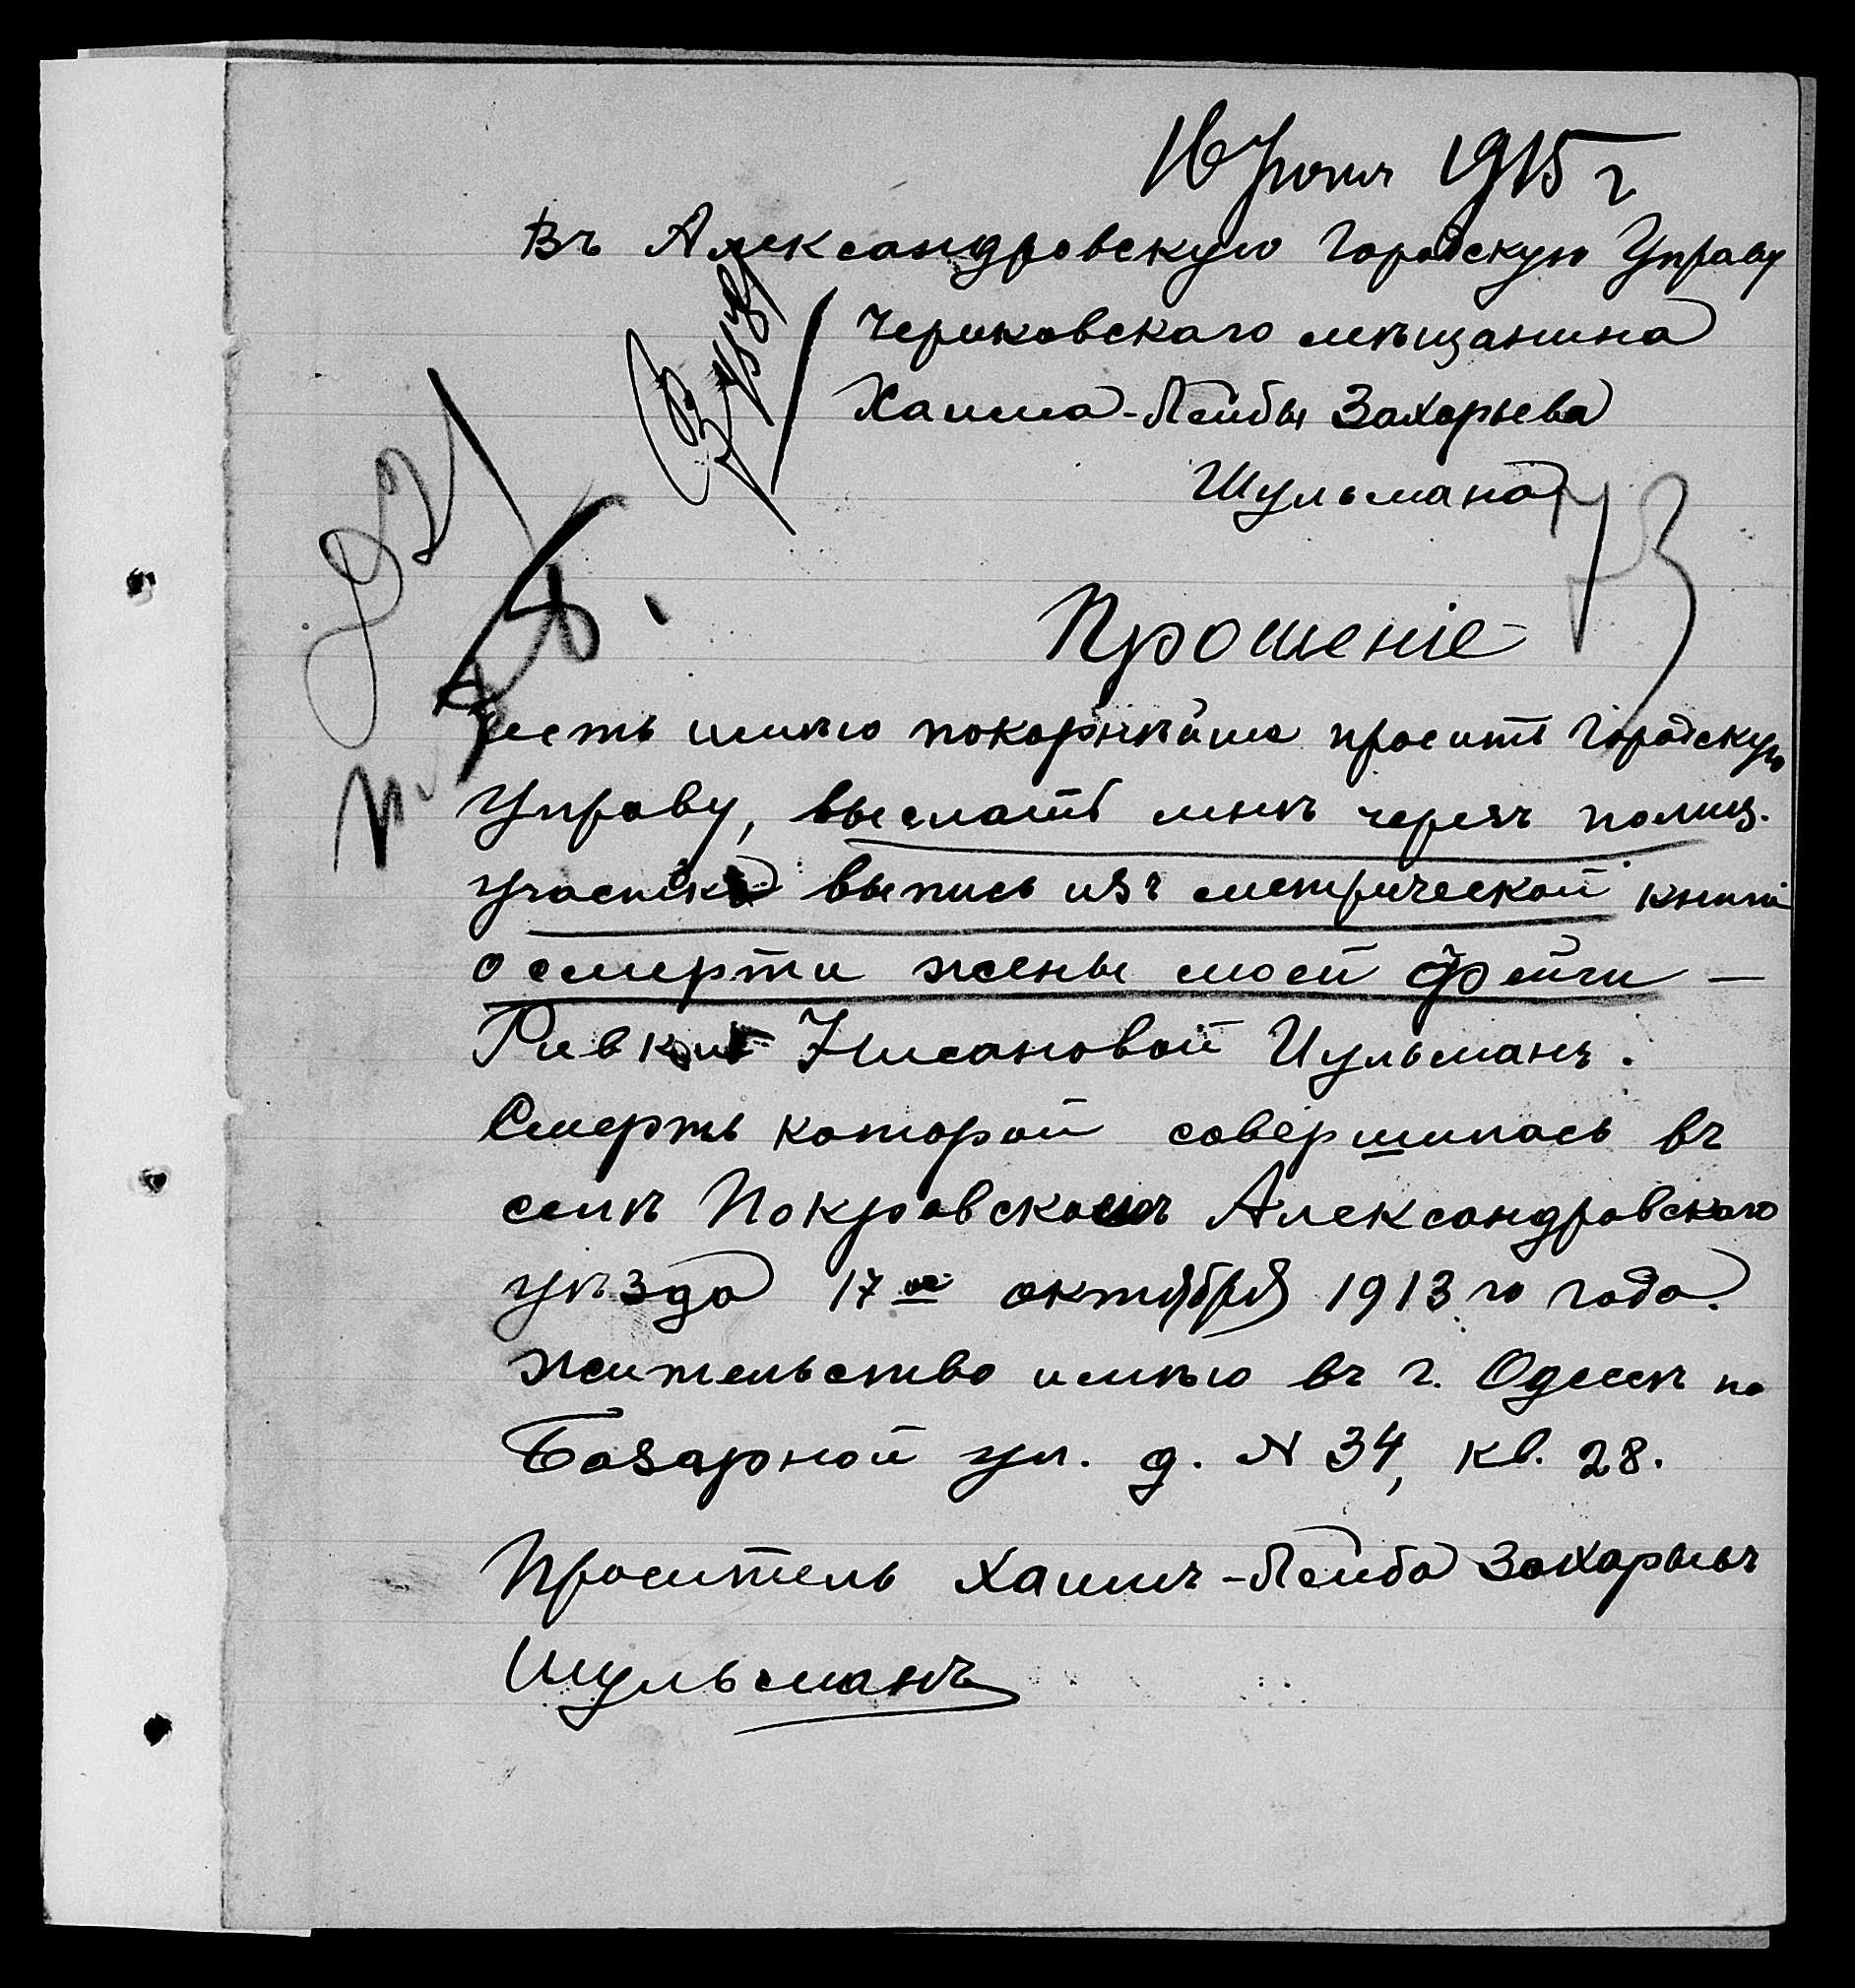 16 Іюня 1915 г
Въ Александровскую Городскую Управу
Чериковскаго мѣщанина
Хаима-Лейбы Захарьева
Шульмана
73
Прошеніе
Честь имѣю покорнѣйше просить Городскую
Управу, выслать мнѣ черезъ полиц.
участокъ выпись изъ метрической книги
о смерти жены моей Фейги –
Ривки Нисановой Шульманъ.
Смерть которой совершилась въ
селѣ Покровскомъ Александровскаго
уѣзда 17го октября 1913 го года.
Жительство имѣю въ г. Одессѣ по
Базарной ул. д. N 34, кв. 28.
Проситель Хаимъ-Лейба Захарьевъ
Шульманъ